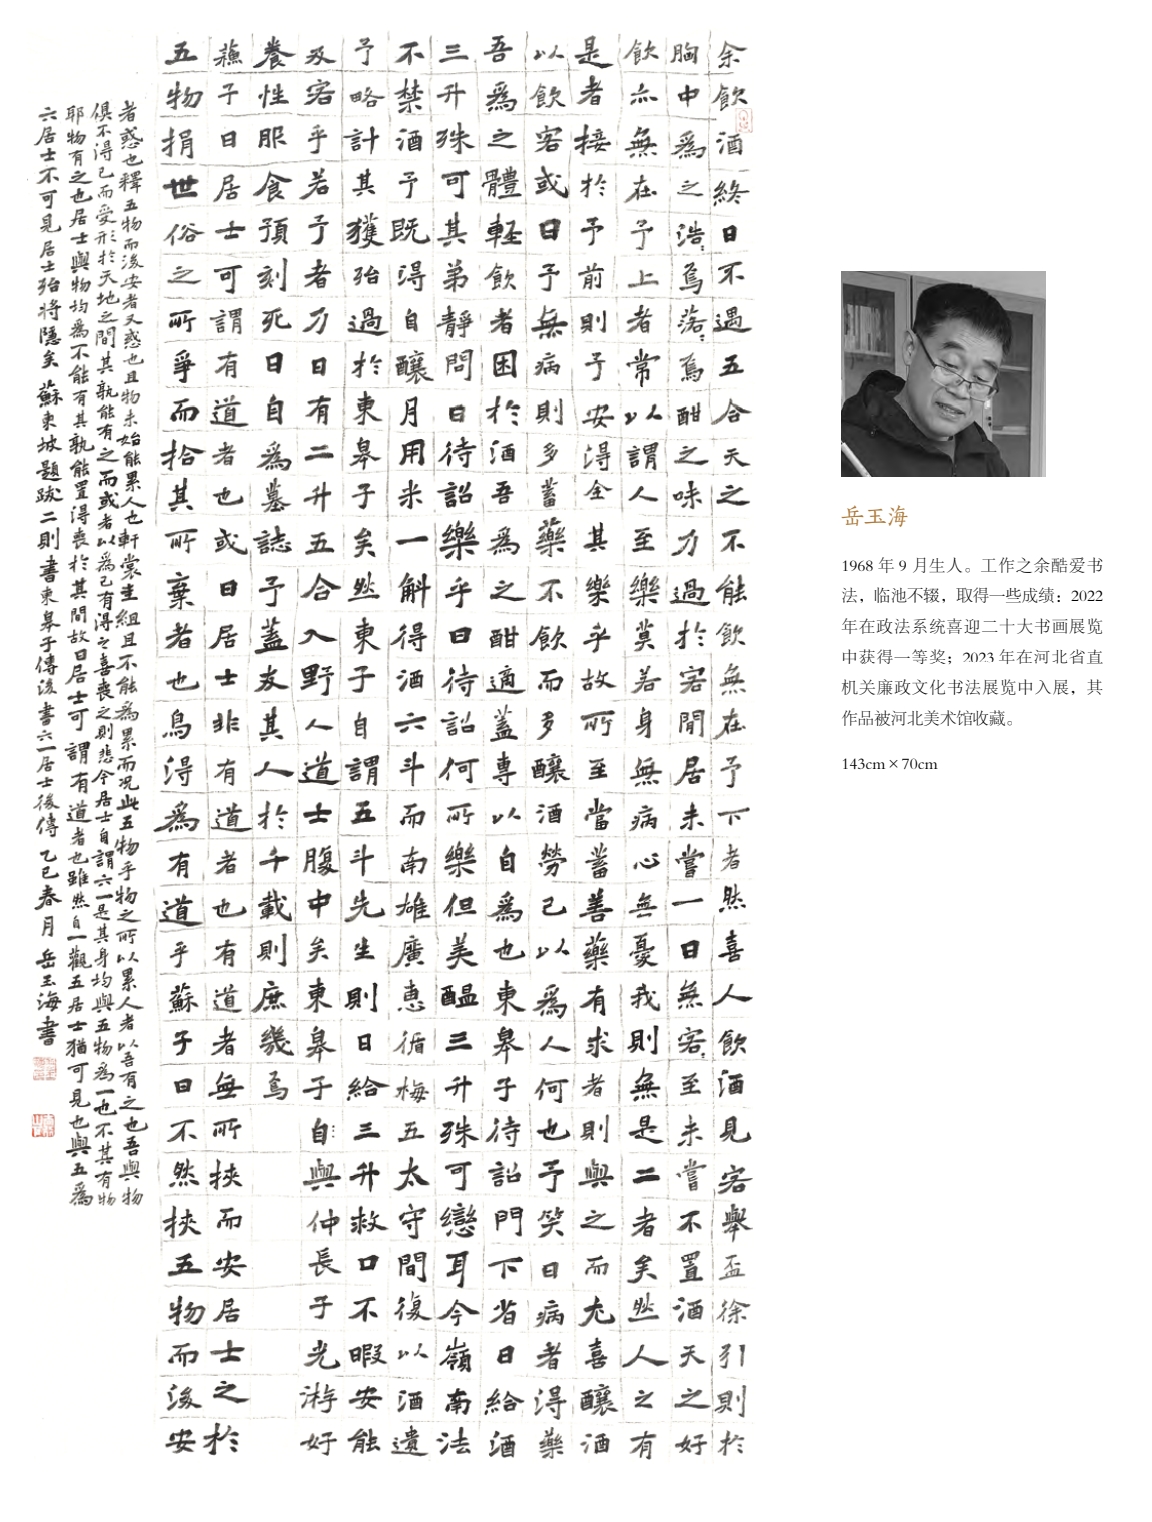 余飲酒終日不過五合天之不能飲無在予下者然喜人飲酒見客舉盃徐引則於
胸中為之浩〻焉落〻焉酣之味乃過於客閒居未嘗一日無客〻至未嘗不置酒天之好
飲亦無在予上者常以謂人至樂莫若身無病心無憂我則無是二者矣然人之有
是者接於予前則予安得全其樂乎故所至當蓄善藥有求者則與之而尤喜釀酒
以飲客或曰予無病則多蓄藥不飲而多釀酒勞己以為人何也予笑曰病者得藥
吾為之體輕飲者困於酒吾為之酣適蓋專以自為也東皋子待詔門下省日給酒
三升殊可其弟靜問曰待詔樂乎曰待詔何所樂但美醞三升殊可戀耳今嶺南法
不禁酒予既得自釀月用米一斛得酒六斗而南雄廣惠循梅五太守間復以酒遺
予略計其獲殆過於東皋子矣然東子自謂五斗先生則日給三升救口不暇安能
及客乎若予者乃日有二升五合入野人道士腹中矣東皋子自〻與仲長子光游好
養性服食預刻死日自為墓誌予蓋友其人於千載則庶幾焉
蘇子曰居士可謂有道者也或曰居士非有道者也有道者無所挾而安居士之於
五物捐世俗之所爭而拾其所棄者也烏得為有道乎蘇子曰不然挾五物而後安
者惑也釋五物而後安者又惑也且物未始能累人也軒裳圭組且不能為累而況此五物乎物之所以累人者以吾有之也吾與物
俱不得已而受形於天地之間其孰能有之而或者以為己有得之喜喪之則悲今居士自謂六一是其身均與五物為一也不其有物
耶物有之也居士與物均為不能有其孰能置得喪於其間故曰居士可謂有道者也雖然自一觀五居士猶可見也與五為
六居士不可見居士殆將隱矣 蘇東坡題跋二則書東皋子傳後書六一居士後傳 乙巳春月岳玉海書
岳玉海
1968 年 9 月生人。工作之余酷爱书
法，临池不辍，取得一些成绩：2022
年在政法系统喜迎二十大书画展览
中获得一等奖；2023 年在河北省直
机关廉政文化书法展览中入展，其
作品被河北美术馆收藏。
143cm × 70cm